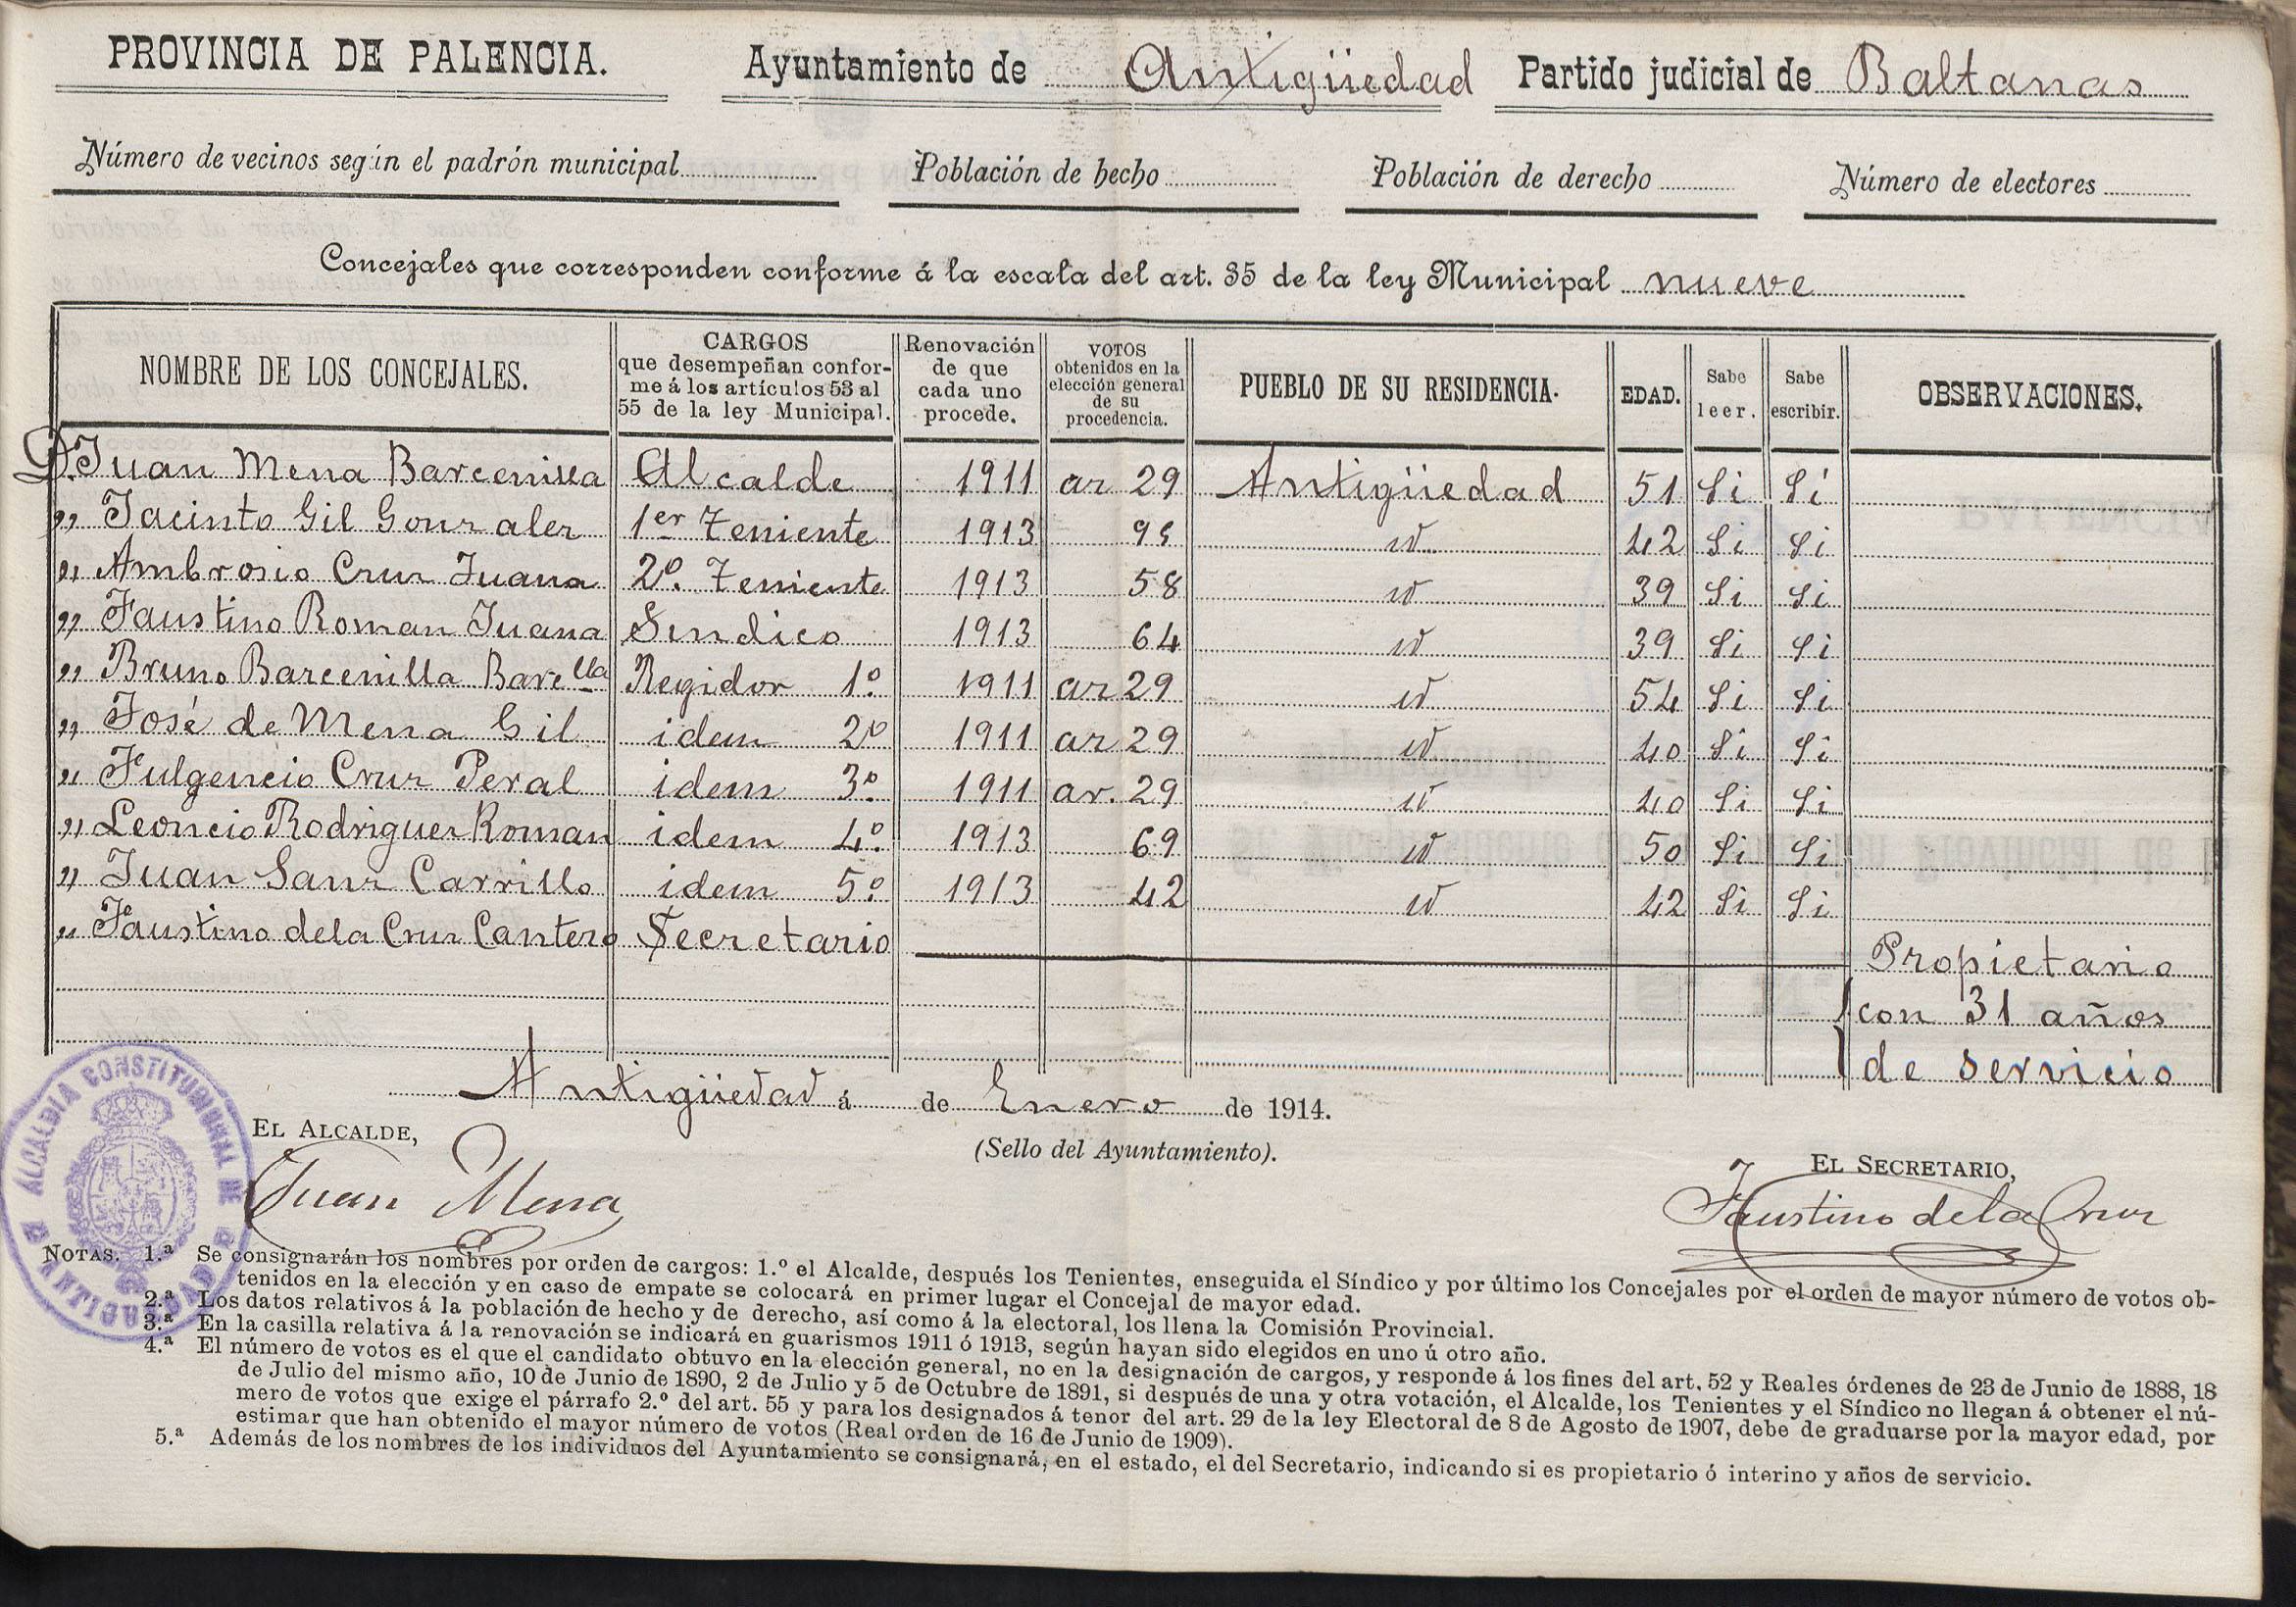 PROVINCIA DE PALENCIA. Ayuntamiento de Antigüedad Partido judicial de Baltanas
Número de vecinos según el padrón municipal Población de hecho Población de derecho Número de electores
Concejales que corresponden conforme á la escala del art. 35 de la ley Municipal nueve
NOMBRE DE LOS CONCEJALES. CARGOS que desempeñan conforme á los artículos 53 al 55 de la ley Municipal. Renovación de que cada uno procede. VOTOS obtenidos en la elección general de su procedencia. PUEBLO DE SU RESIDENCIA. EDAD. Sabe leer. Sabe escribir. OBSERVACIONES.
D. Juan Mena Barcenilla Alcalde 1911 ar 29 Antigüedad 51 Si Si
„ Jacinto Gil Gonzalez 1er Teniente 1913 95 id 42 Si Si
„ Ambrosio Cruz Juana 2º. Teniente 1913 58 id 39 Si Si
„ Faustino Roman Juana Sindico 1913 64 id 39 Si Si
„ Bruno Barcenilla Barclla Regidor 1º. 1911 ar 29 id 54 Si Si
„ José de Mena Gil idem 2º 1911 ar 29 id 40 Si Si
„ Fulgencio Cruz Peral idem 3º. 1911 ar. 29 id 40 Si Si
„ Leoncio Rodriguez Roman idem 4º. 1913 69 id 50 Si Si
„ Juan Sanz Carrillo idem 5º. 1913 42 id 42 Si Si
„ Faustino de la Cruz Cantero Secretario Propietario
con 31 años
de servicio
Antigüedad á de Enero de 1914.
EL ALCALDE,
(Sello del Ayuntamiento).
EL SECRETARIO,
Juan Mena
Faustino de la Cruz
ALCALDIA CONSTITUCIONAL DE ANTIGUEDAD
NOTAS. 1.ª Se consignarán los nombres por orden de cargos: 1.º el Alcalde, después los Tenientes, enseguida el Síndico y por último los Concejales por el orden de mayor número de votos ob-
tenidos en la elección y en caso de empate se colocará en primer lugar el Concejal de mayor edad.
2.ª Los datos relativos á la población de hecho y de derecho, así como á la electoral, los llena la Comisión Provincial.
3.ª En la casilla relativa á la renovación se indicará en guarismos 1911 ó 1913, según hayan sido elegidos en uno ú otro año.
4.ª El número de votos es el que el candidato obtuvo en la elección general, no en la designación de cargos, y responde á los fines del art. 52 y Reales órdenes de 23 de Junio de 1888, 18
de Julio del mismo año, 10 de Junio de 1890, 2 de Julio y 5 de Octubre de 1891, si después de una y otra votación, el Alcalde, los Tenientes y el Síndico no llegan á obtener el nú-
mero de votos que exige el párrafo 2.º del art. 55 y para los designados á tenor del art. 29 de la ley Electoral de 8 de Agosto de 1907, debe de graduarse por la mayor edad, por
estimar que han obtenido el mayor número de votos (Real orden de 16 de Junio de 1909).
5.ª Además de los nombres de los individuos del Ayuntamiento se consignará, en el estado, el del Secretario, indicando si es propietario ó interino y años de servicio.